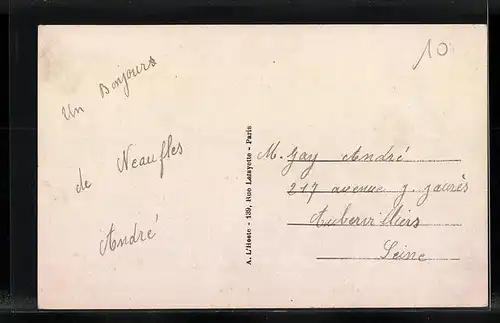 10
Un Bonjours
de Neaufles
André
A. L'Hoste - 139, Rue Lafayette - Paris
M. Gay André
217 avenue J. Jaurès
Aubervilliers
Seine